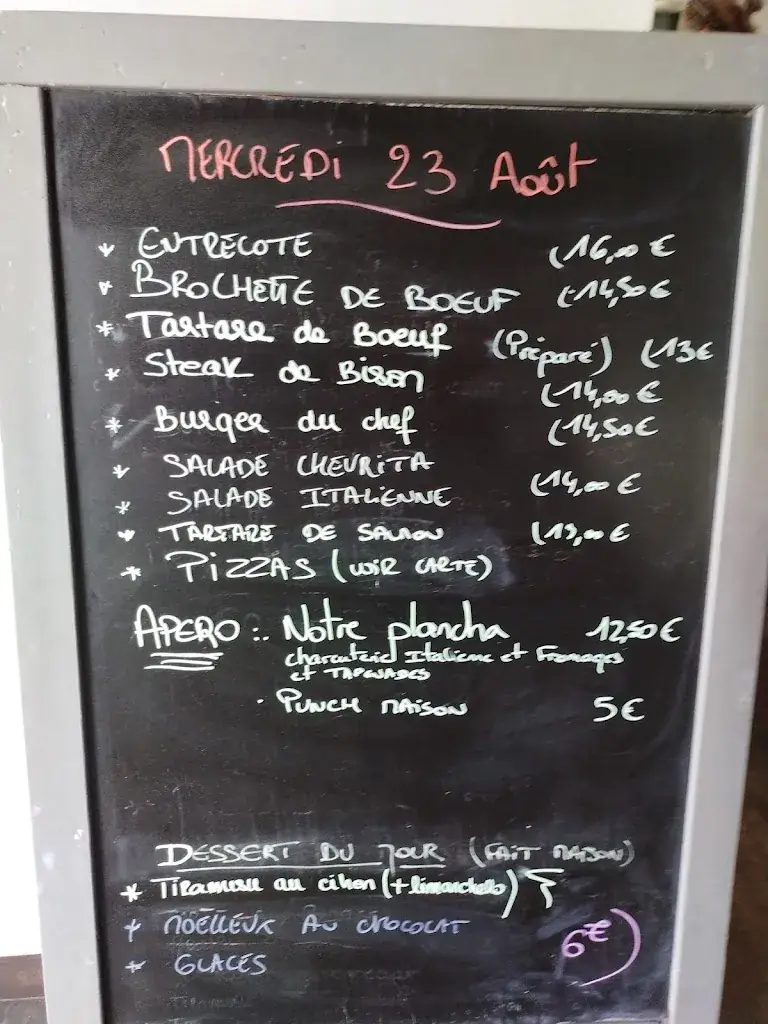 MERCREDI 23 Août
* ENTRECOTE (16,00 €
* BROCHETTE DE BOEUF (14,50 €
* Tartare de Boeuf (Préparé) (13 €
* Steak de Bison (14,00 €
* Burger du chef (14,50 €
* SALADE CHEVRITA
* SALADE ITALIENNE (14,00 €
* TARTARE DE SAUMON €
* PIZZAS (VOIR CARTE)
APERO :. Notre plancha 12,50 €
charcuterie Italienne et Fromages
et TAPENADES
· PUNCH MAISON 5 €
DESSERT DU JOUR (FAIT MAISON)
* Tiramisu au citron (+ limanchello)
+ MOELLEUX AU CHOCOLAT
* GLACES 6€